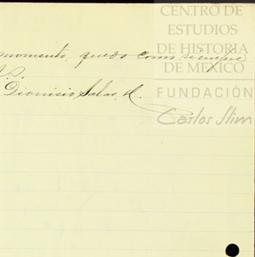 CENTRO DE
ESTUDIOS
DE HISTORIA
DE MÉXICO
FUNDACIÓN
Carlos Slim
momento, quedo como siempre
Dionisio Salas R.